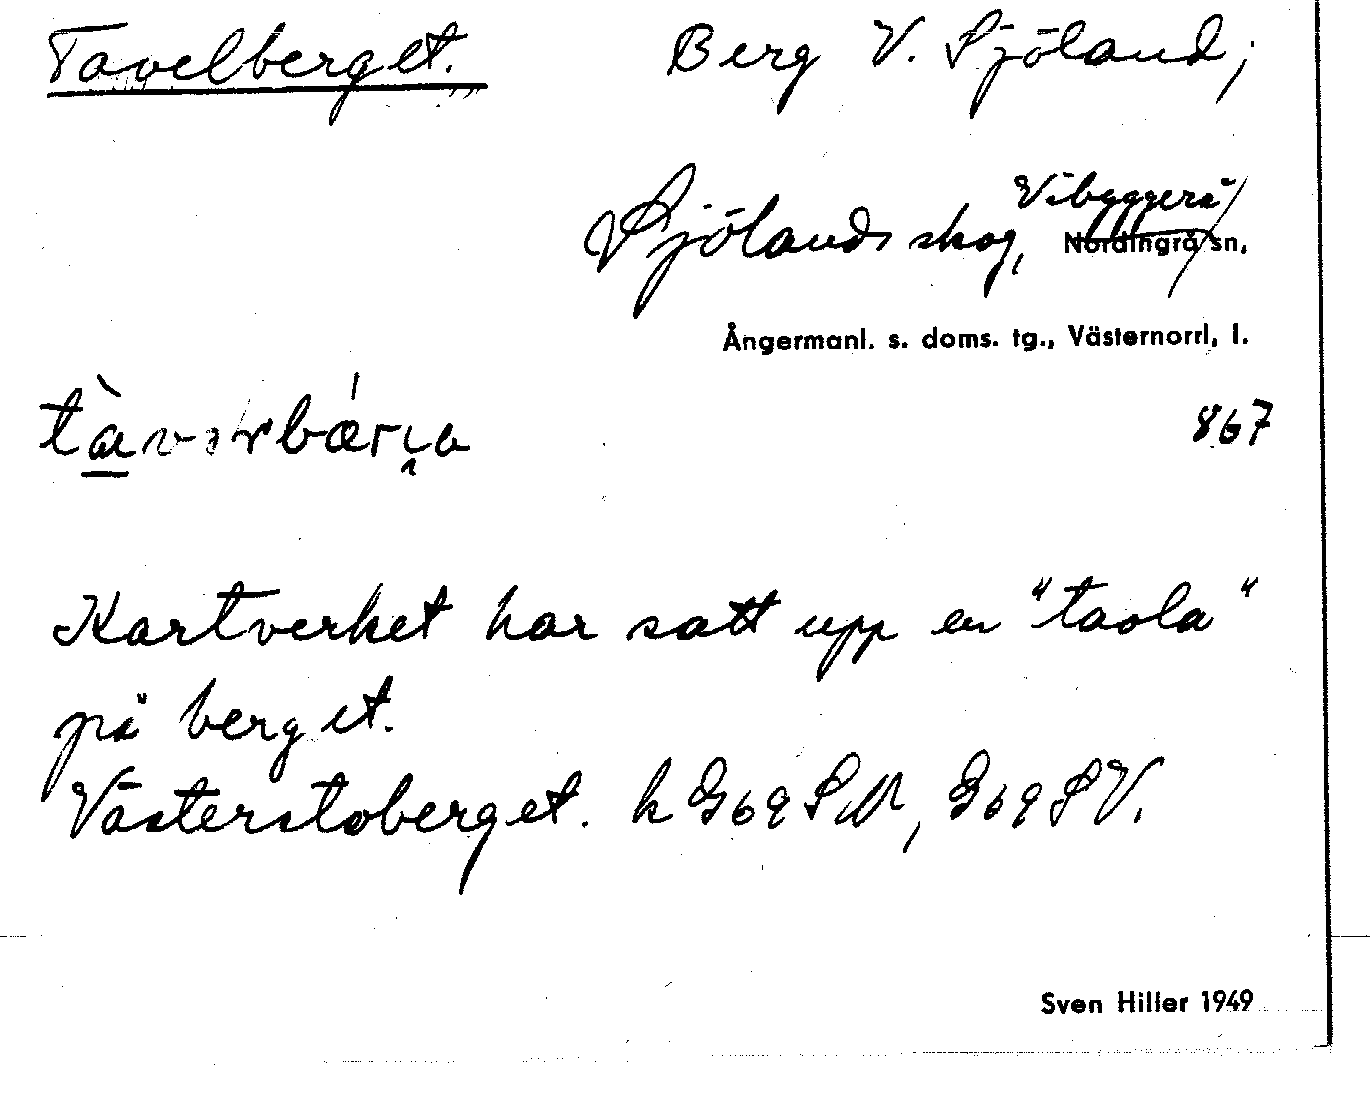 Tavelberget. Berg V. Sjöland;
Sjölands skog, Vibyggerå
Nordingrå sn.
Ångermanl. s. doms. tg., Västernorrl. l.
867
Kartverket har satt upp en "taola"
på berget.
Västerstoberget. k G69SM, G69SV.
Sven Hiller 1949